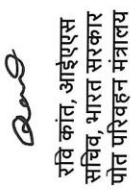 रवि कांत, आईएएस
सचिव, भारत सरकार
पोत परिवहन मंत्रालय